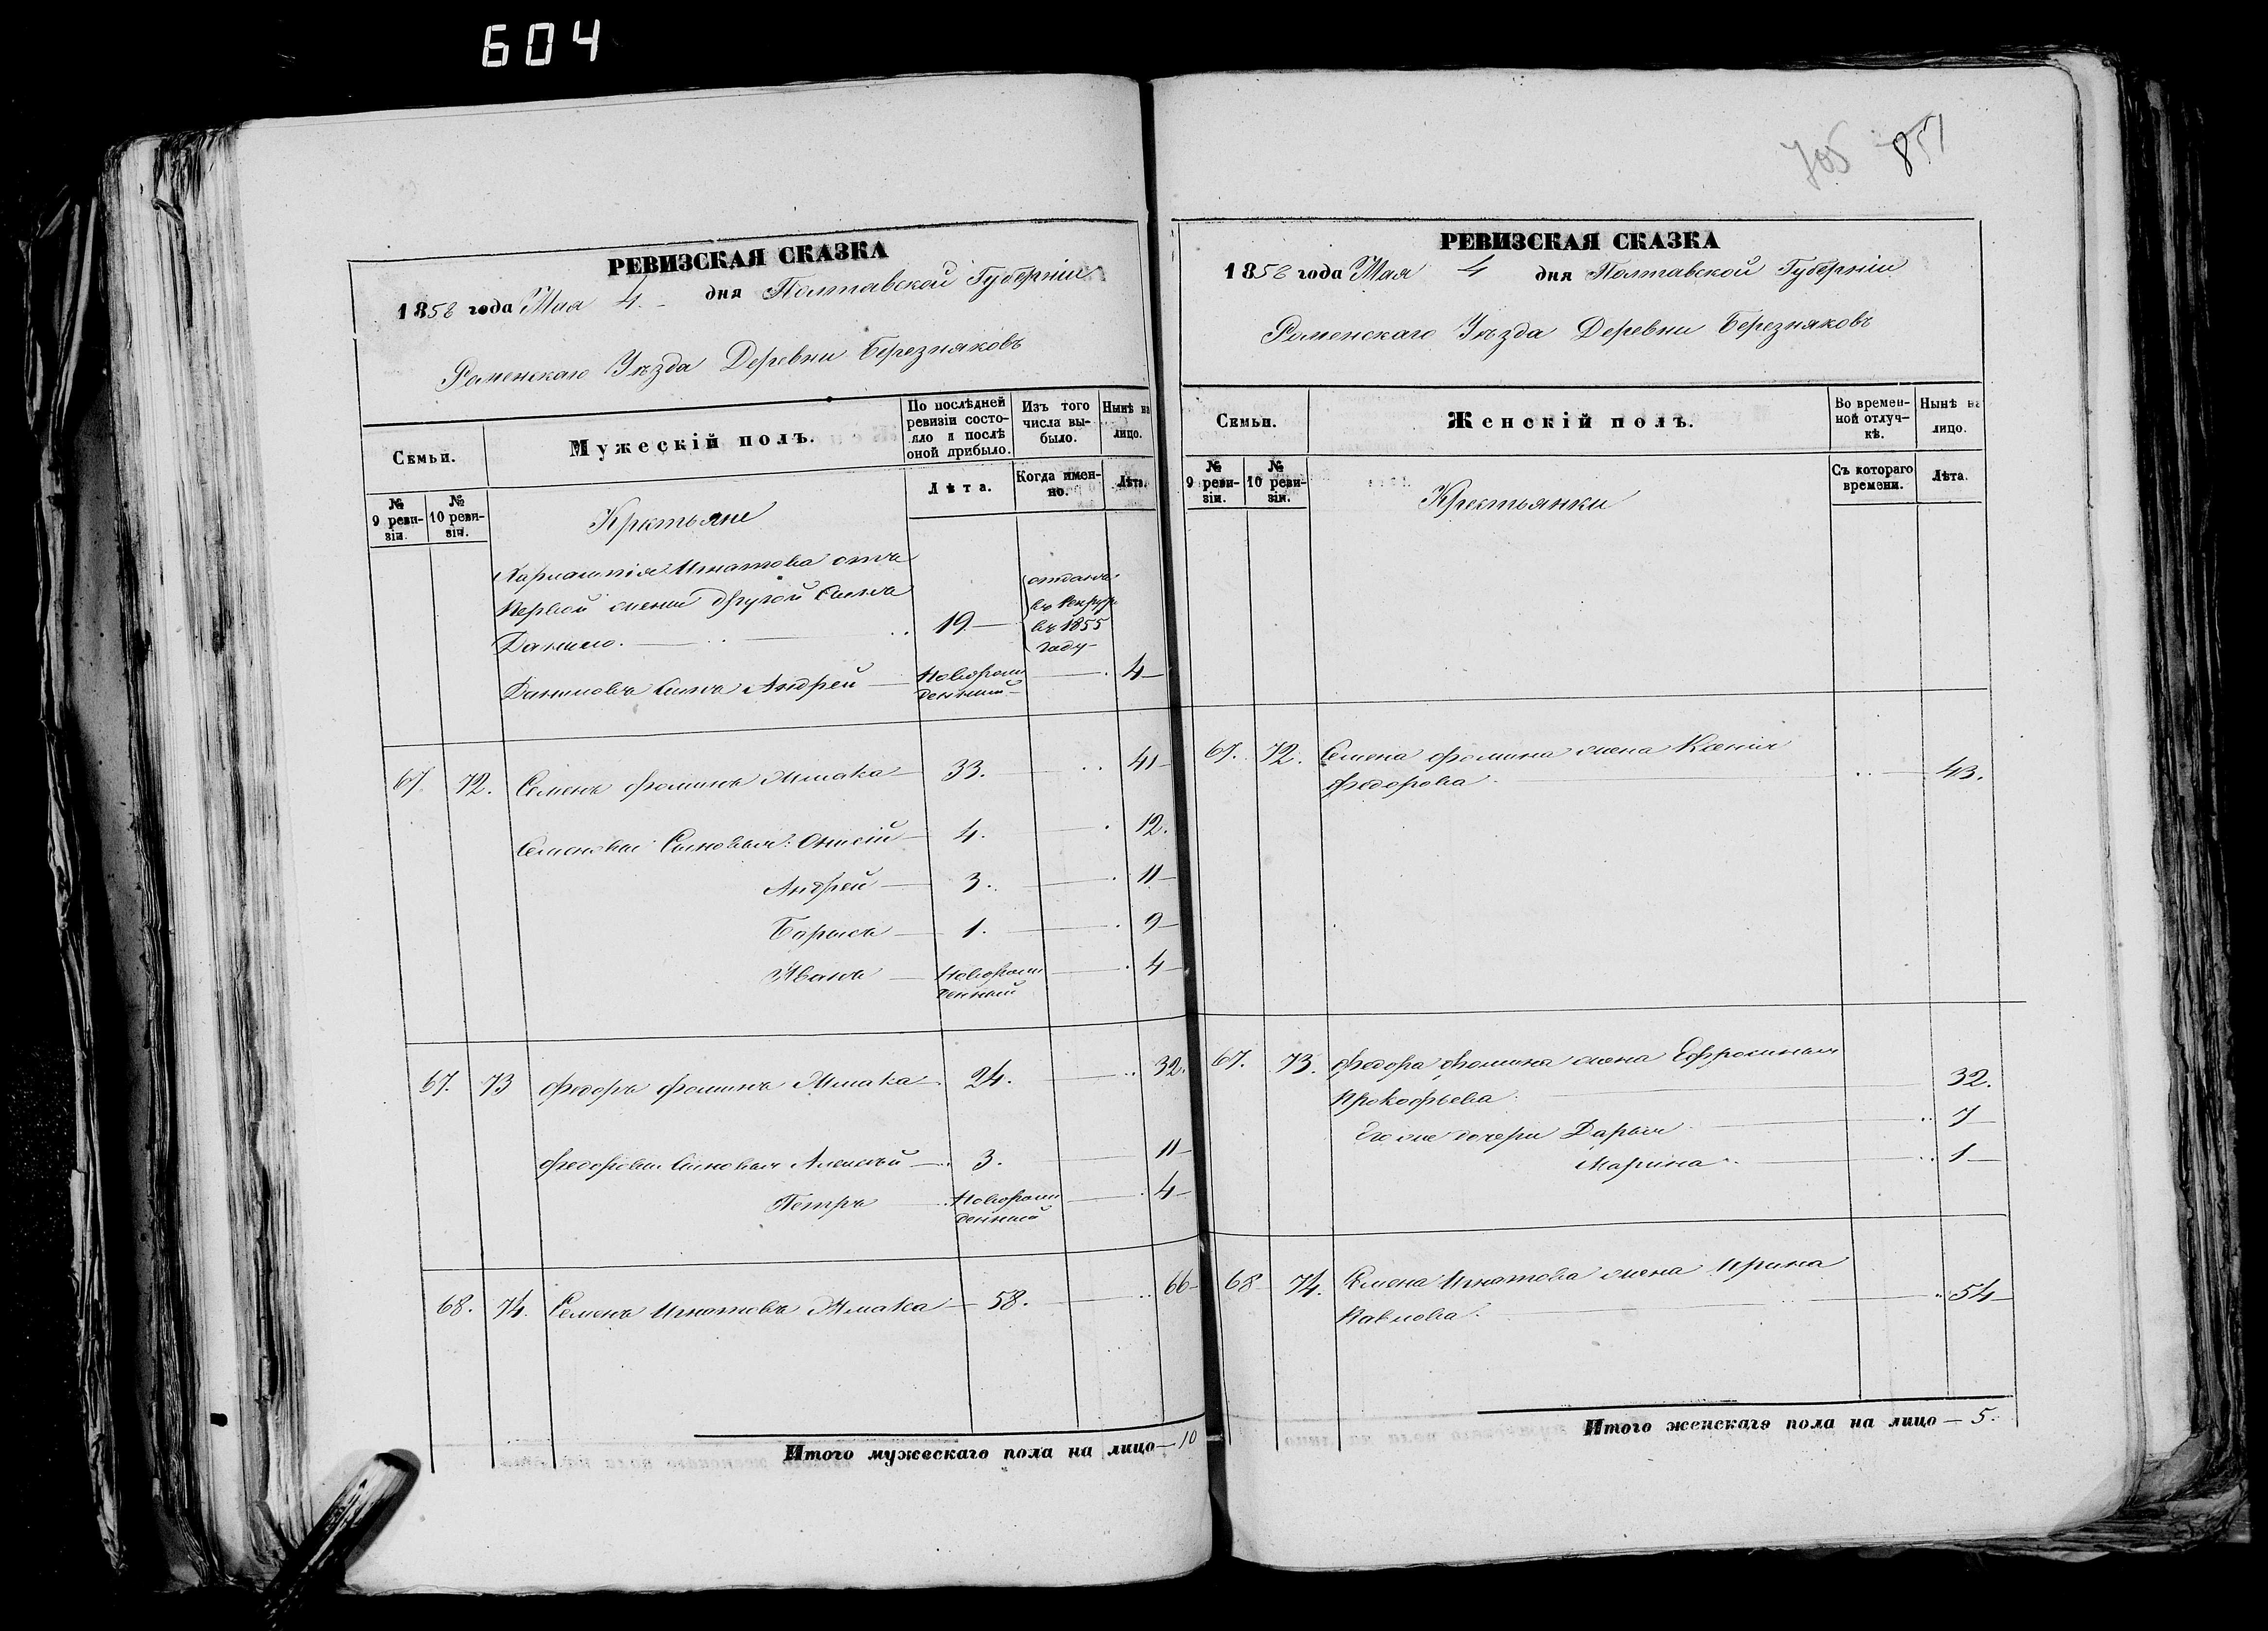 604
705 851
РЕВИЗСКАЯ СКАЗКА
1858 года Мая 4 дня Полтавской Губерніи
Роменскаго Уѣзда Деревни Березняковъ
Семьи.
Мужескій полъ.
По послѣдней ревизіи состояло и послѣ оной прибыло.
Изъ того числа выбыло.
Нынѣ на лицо.
№ 9 ревизіи.
№ 10 ревизіи.
Лѣта.
Когда именно.
Лѣта.
Крестьяне
Игнатова отъ
первой жены другой сынъ
Данило. 19 отданъ въ рекруты въ 1855 году
Даниловъ сынъ Андрей Новорожденный 4
67. 72. Семенъ Фоминъ 33. 41
Семеновы сыновья: Онисій 4. 12.
Андрей 3. 11
Борисъ 1. 9
Иванъ Новорожденный 4
67. 73 Федоръ Фоминъ 24. 32.
Федоровы сыновья Алексѣй 3. 11
Петръ Новорожденный 4
68. 74. Семенъ Игнатовъ 58. 66
Итого мужескаго пола на лицо 10
РЕВИЗСКАЯ СКАЗКА
1858 года Мая 4 дня Полтавской Губерніи
Роменскаго Уѣзда Деревни Березняковъ
Семьи.
Женскій полъ.
Во временной отлучкѣ.
Нынѣ на лицо.
№ 9 ревизіи.
№ 10 ревизіи.
Съ котораго времени.
Лѣта.
Крестьянки
67. 72. Семена Фомина жена Ксенія
Федорова 43.
67. 73. Федора Фомина жена Ефросинья
Прокофьева 32.
Его же дочери Дарья 7
Марина 1
68 74. Семена Игнатова жена Ирина
Павлова 54
Итого женскаго пола на лицо 5.